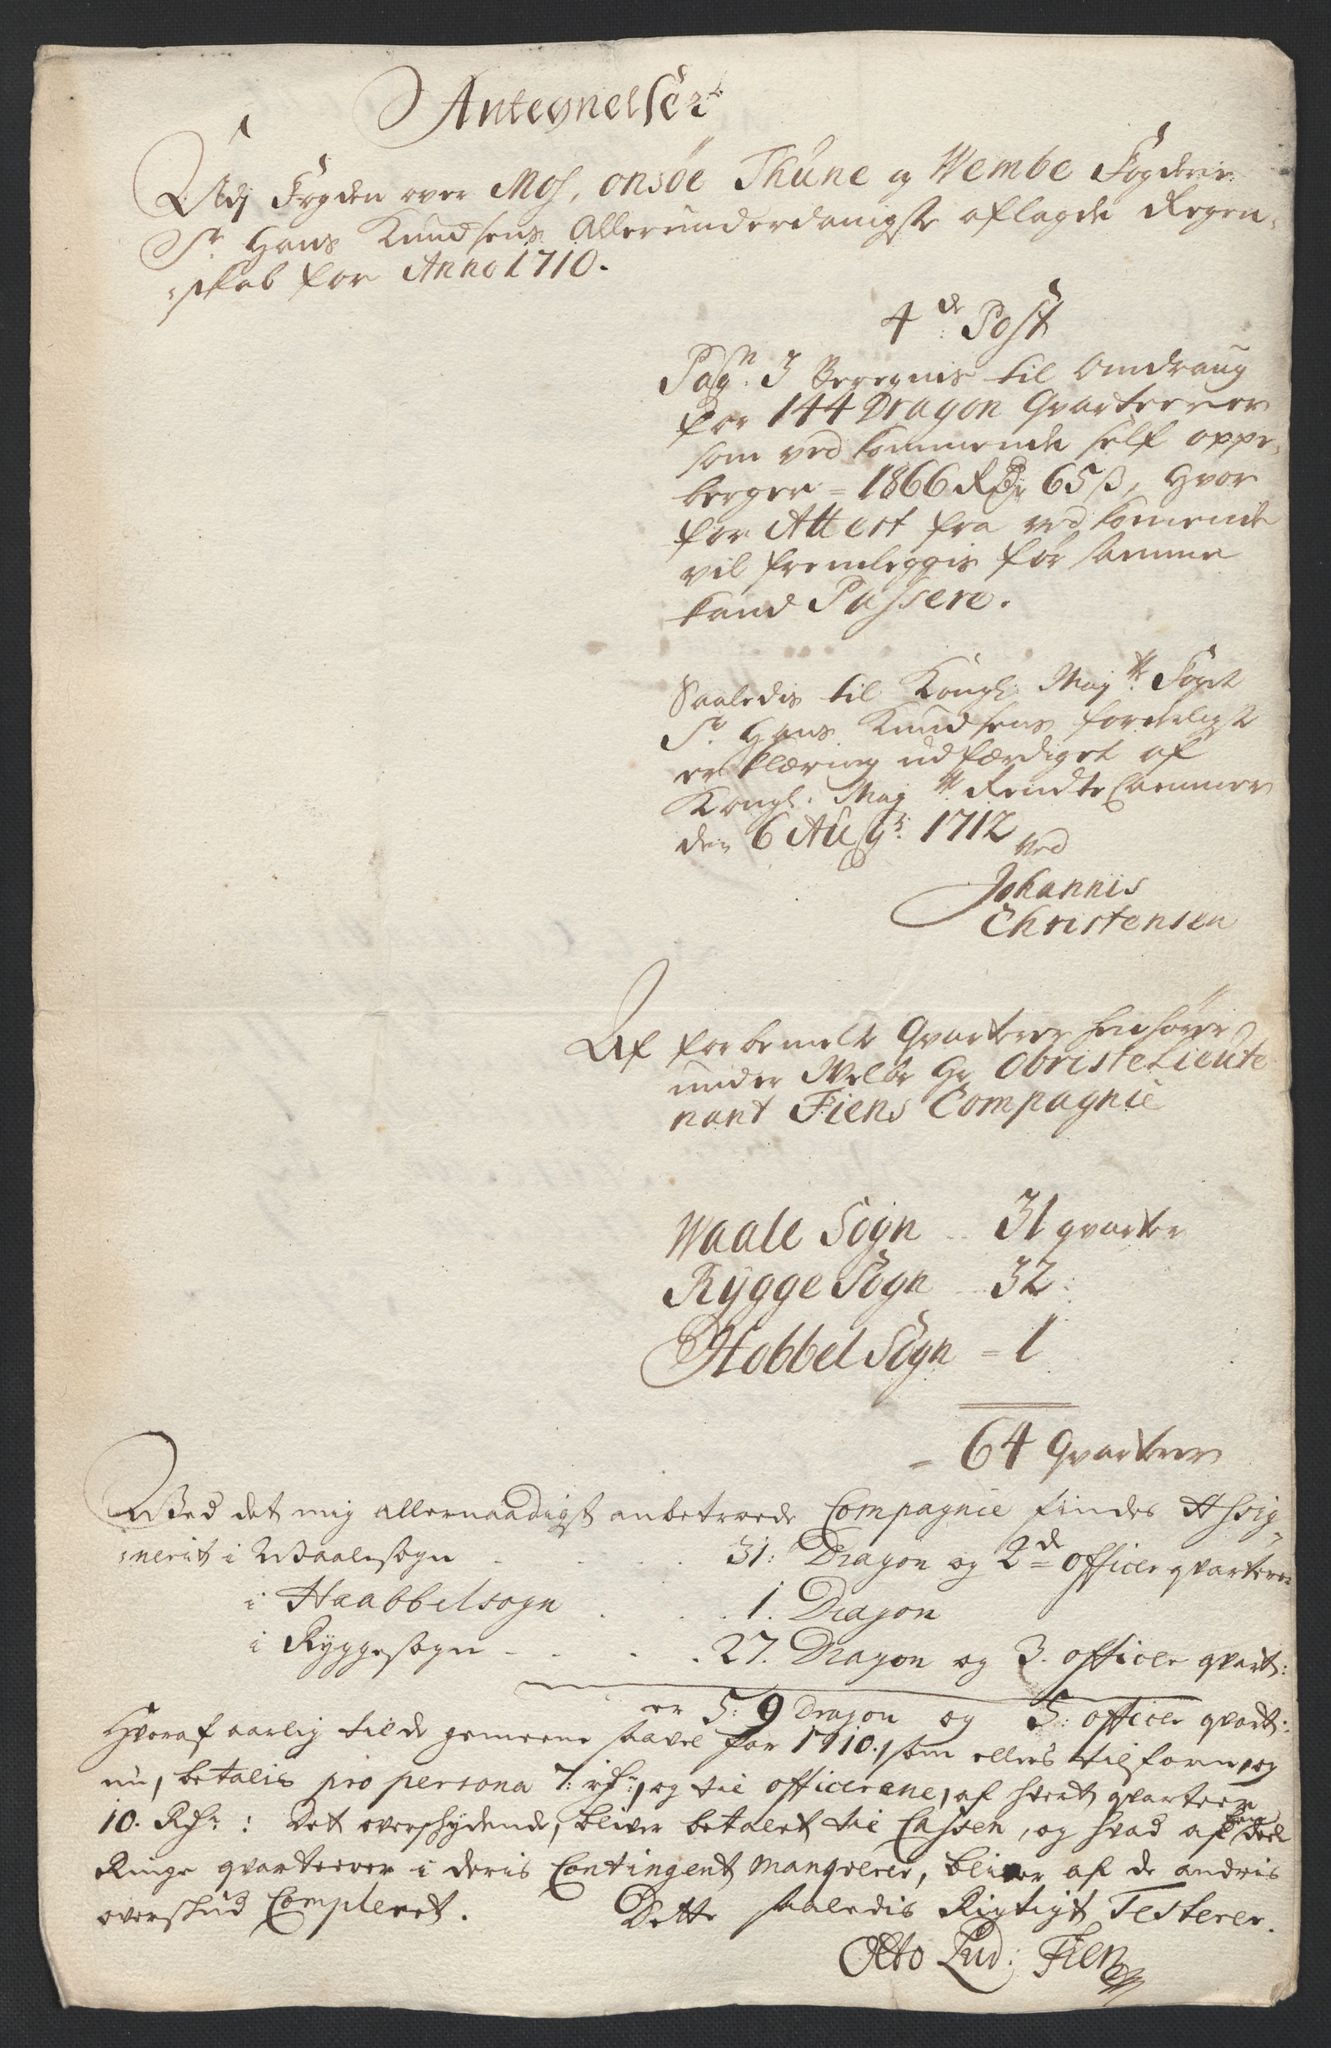 Antegnelser
Udj Fogden over Mos, onsøe Thune og Wembe Fogderie
Sr. Hans Knudsens Allerunderdanigste aflagde Regen-
skab for Anno 1710.
4de Post
Pagn: 3 Beregnis til Omdraug
for 144 Dragon Qvarterer
som vedkommende self oppe-
berger = 1866 Rdr 65 ß, hvor
for Attest fra vedkomende
vil fremleggis før samme
kand Passere.
Saaledis til Kongl: Mayts: Foget
Sr. Hans Knudsens forneligst
erklæring udfærdiget af
Kongl: Mayts Rendte Cammer
den 6 Augs: 1712
ved
Johannis
Christensen
Af forbemelte Qvarterer henhører
under Welbr Hr Obriste Lieute
nant Fiens Compagnie
Waale Sogn 31 qvarter
Rygge Sogn 32
Hobbel Sogn = 1
= 64 Qvarterer
Ved det mig allernaadigst anbetroede Compagnie findes Assig-
nerit i Waalesogn 31: Dragon og 2de officer qvarterer
i Haabbelsogn 1. Dragon
i Ryggesogn 27. Dragon og 3. officer qvart:
er 5:9 Dragon og 5: officer qvart:
Hvoraf aarlig til de gemeene saavel for 1710., som ellers tilforn, og
nu, betalis pro persona 7: rdr:, og til officerene, af hvert qvarteer
10. Rdr: : Det overskydende, bliver betalet til Cassen, og hvad af deel
Ringe qvarterer i deris Contingent manqverer, bliver af de andris
overskud Completet. Dette saaledis Rigtigt Testerer.
Otto Lud: Fien